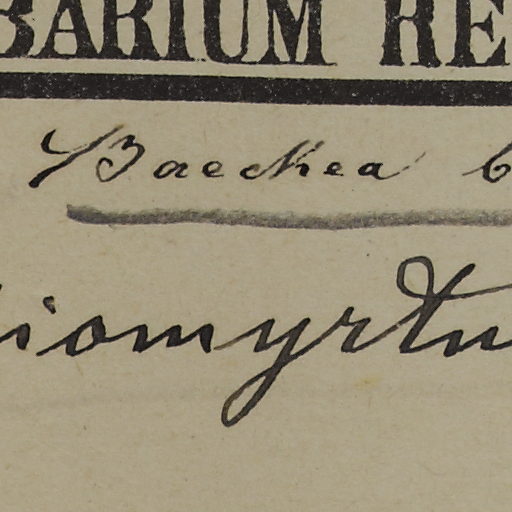 BARIUM RE
Baeckea b
iomyrtu